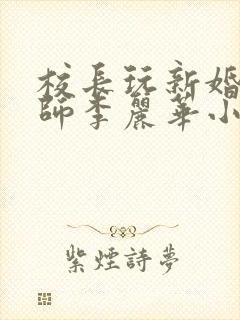 校長玩新婚
師李麗華小
紫煙詩夢